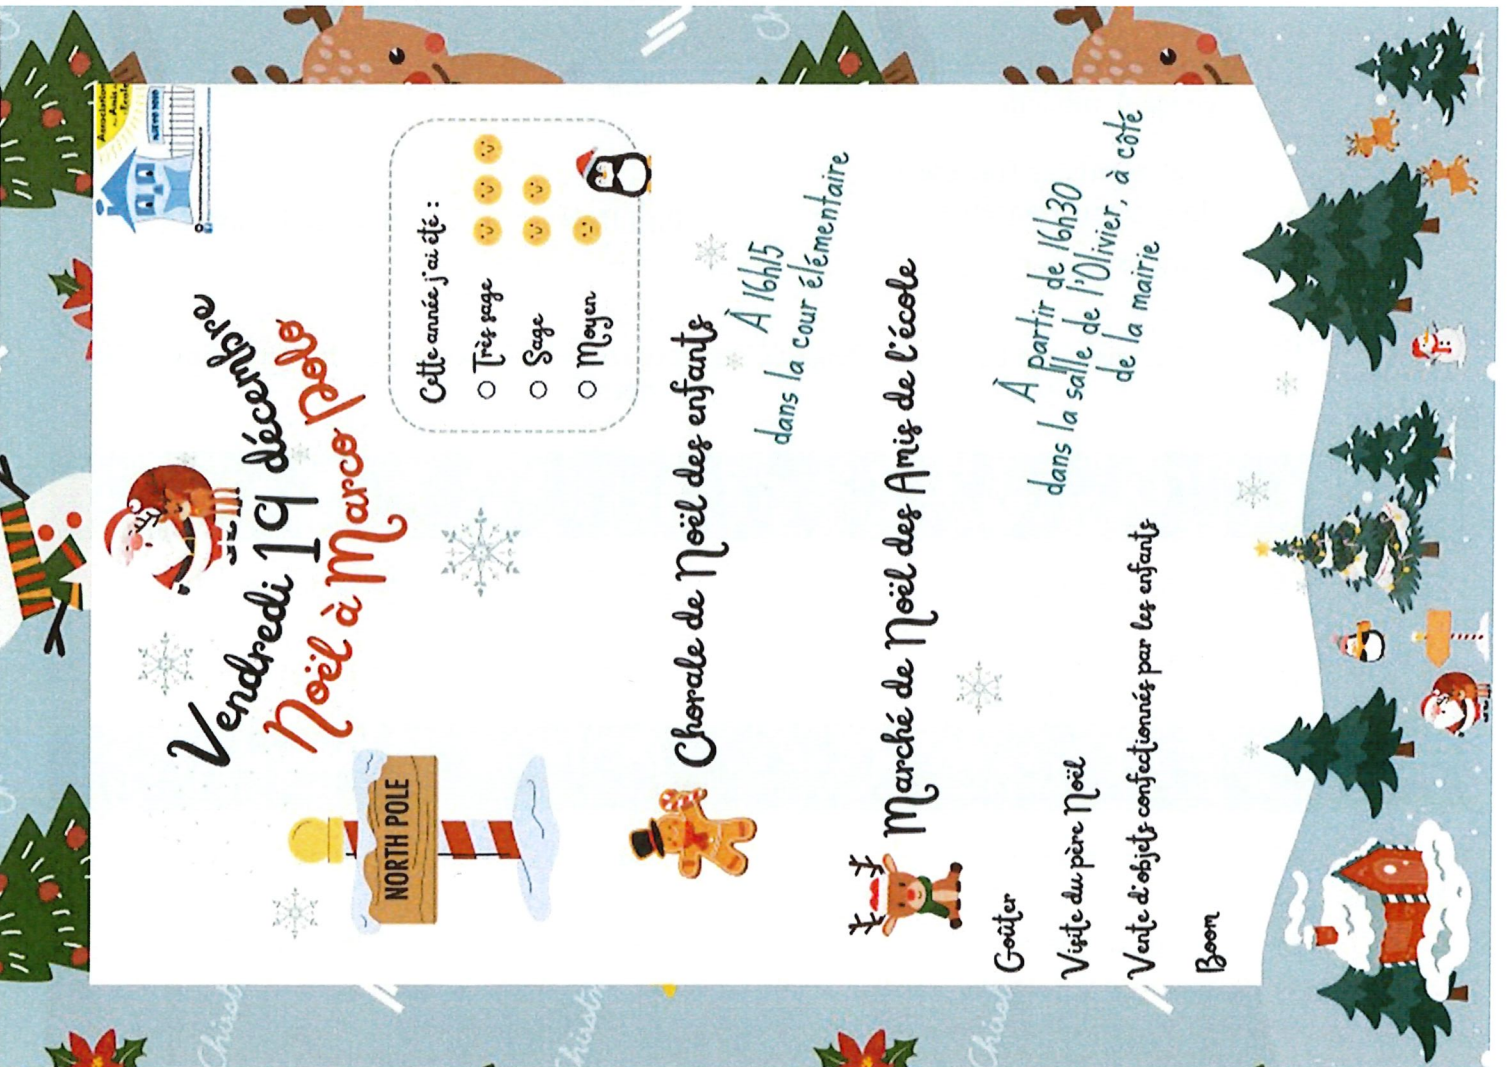 Association
des Amis de
l'Ecole
MARCO POLO
Vendredi 19 décembre
Noël à Marco polo
NORTH POLE
Cette année j'ai été :
Très sage
Sage
Moyen
Chorale de Noël des enfants
À 16h15
dans la cour élémentaire
Marché de Noël des Amis de l'école
À partir de 16h30
dans la salle de l'Olivier, à côté
de la mairie
Goûter
Visite du père Noël
Vente d'objets confectionnés par les enfants
Boom